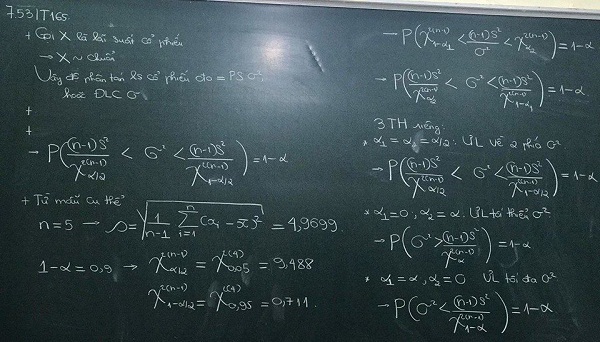 7.53|T165
+ Gọi X là lãi suất cổ phiếu
→ X ~ chuẩn
Vậy độ phân tán ls cổ phiếu đo = PS σ²,
hoặc ĐLC σ
+
+
→ P((n-1)S²/χ²⁽ⁿ⁻¹⁾_α/2 < σ² < (n-1)S²/χ²⁽ⁿ⁻¹⁾_1-α/2) = 1-α
+ Từ mẫu cụ thể
n = 5 → s = √(1/(n-1) Σᵢ₌₁ⁿ (xᵢ - x̄)²) = 4,9699
1-α = 0,9 → χ²⁽ⁿ⁻¹⁾_α/2 = χ²⁽⁴⁾_0,05 = 9,488
χ²⁽ⁿ⁻¹⁾_1-α/2 = χ²⁽⁴⁾_0,95 = 0,711.
→ P(χ²⁽ⁿ⁻¹⁾_1-α₁ < (n-1)S²/σ² < χ²⁽ⁿ⁻¹⁾_α₂) = 1-α
→ P((n-1)S²/χ²⁽ⁿ⁻¹⁾_α₂ < σ² < (n-1)S²/χ²⁽ⁿ⁻¹⁾_1-α₁) = 1-α
3 TH riêng:
* α₁ = α₂ = α/2: ƯL về 2 phía σ²
→ P((n-1)S²/χ²⁽ⁿ⁻¹⁾_α/2 < σ² < (n-1)S²/χ²⁽ⁿ⁻¹⁾_1-α/2) = 1-α
* α₁ = 0, α₂ = α: ƯL tối thiểu σ²
→ P(σ² > (n-1)S²/χ²⁽ⁿ⁻¹⁾_α) = 1-α
* α₁ = α, α₂ = 0 ƯL tối đa σ²
→ P(σ² < (n-1)S²/χ²⁽ⁿ⁻¹⁾_1-α) = 1-α